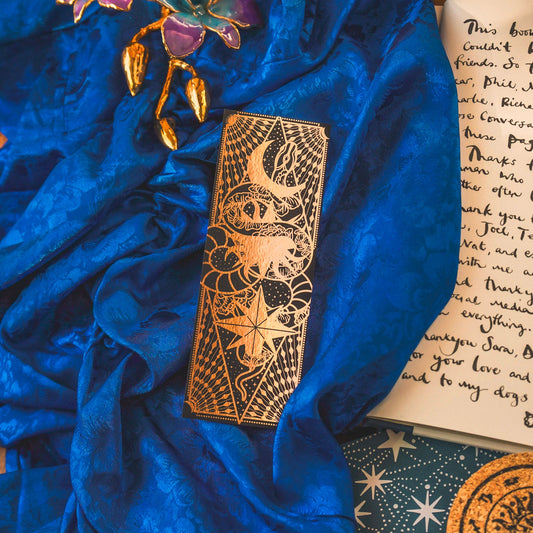 This book
Couldn't b
friends. So t
ear, Phil, M
arlie, Richa
se Conversa
these pag
Thanks t
man who
ther often
hank you
, Joel, Te
Nat, and e
with me a
nd thank y
ocial media
n everything.
hankyou Sara, D
or your love and
and to my dogs